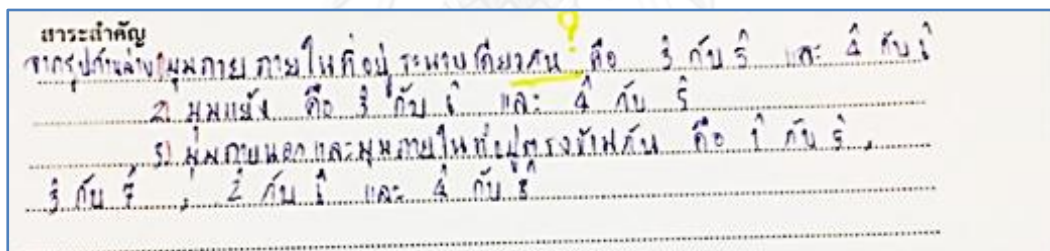 สาระสำคัญ
?
จากรูปด้านล่าง 1) มุมภายในที่อยู่ระนาบเดียวกัน คือ 3̂ กับ 5̂ และ 4̂ กับ 6̂
2) มุมแย้ง คือ 3̂ กับ 6̂ และ 4̂ กับ 5̂
3) มุมภายนอกและมุมภายในที่อยู่ตรงข้ามกัน คือ 1̂ กับ 5̂ ,
3̂ กับ 7̂ , 2̂ กับ 6̂ และ 4̂ กับ 8̂